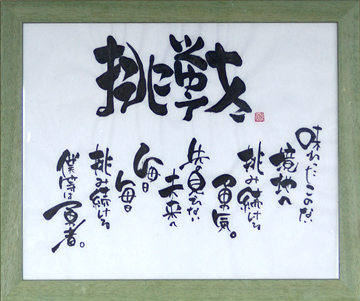 挑戦
味わったことのない
境地へ
挑み続ける
勇気。
先の見えない
未来へ
毎日
毎日
挑み続ける
僕等は勇者。